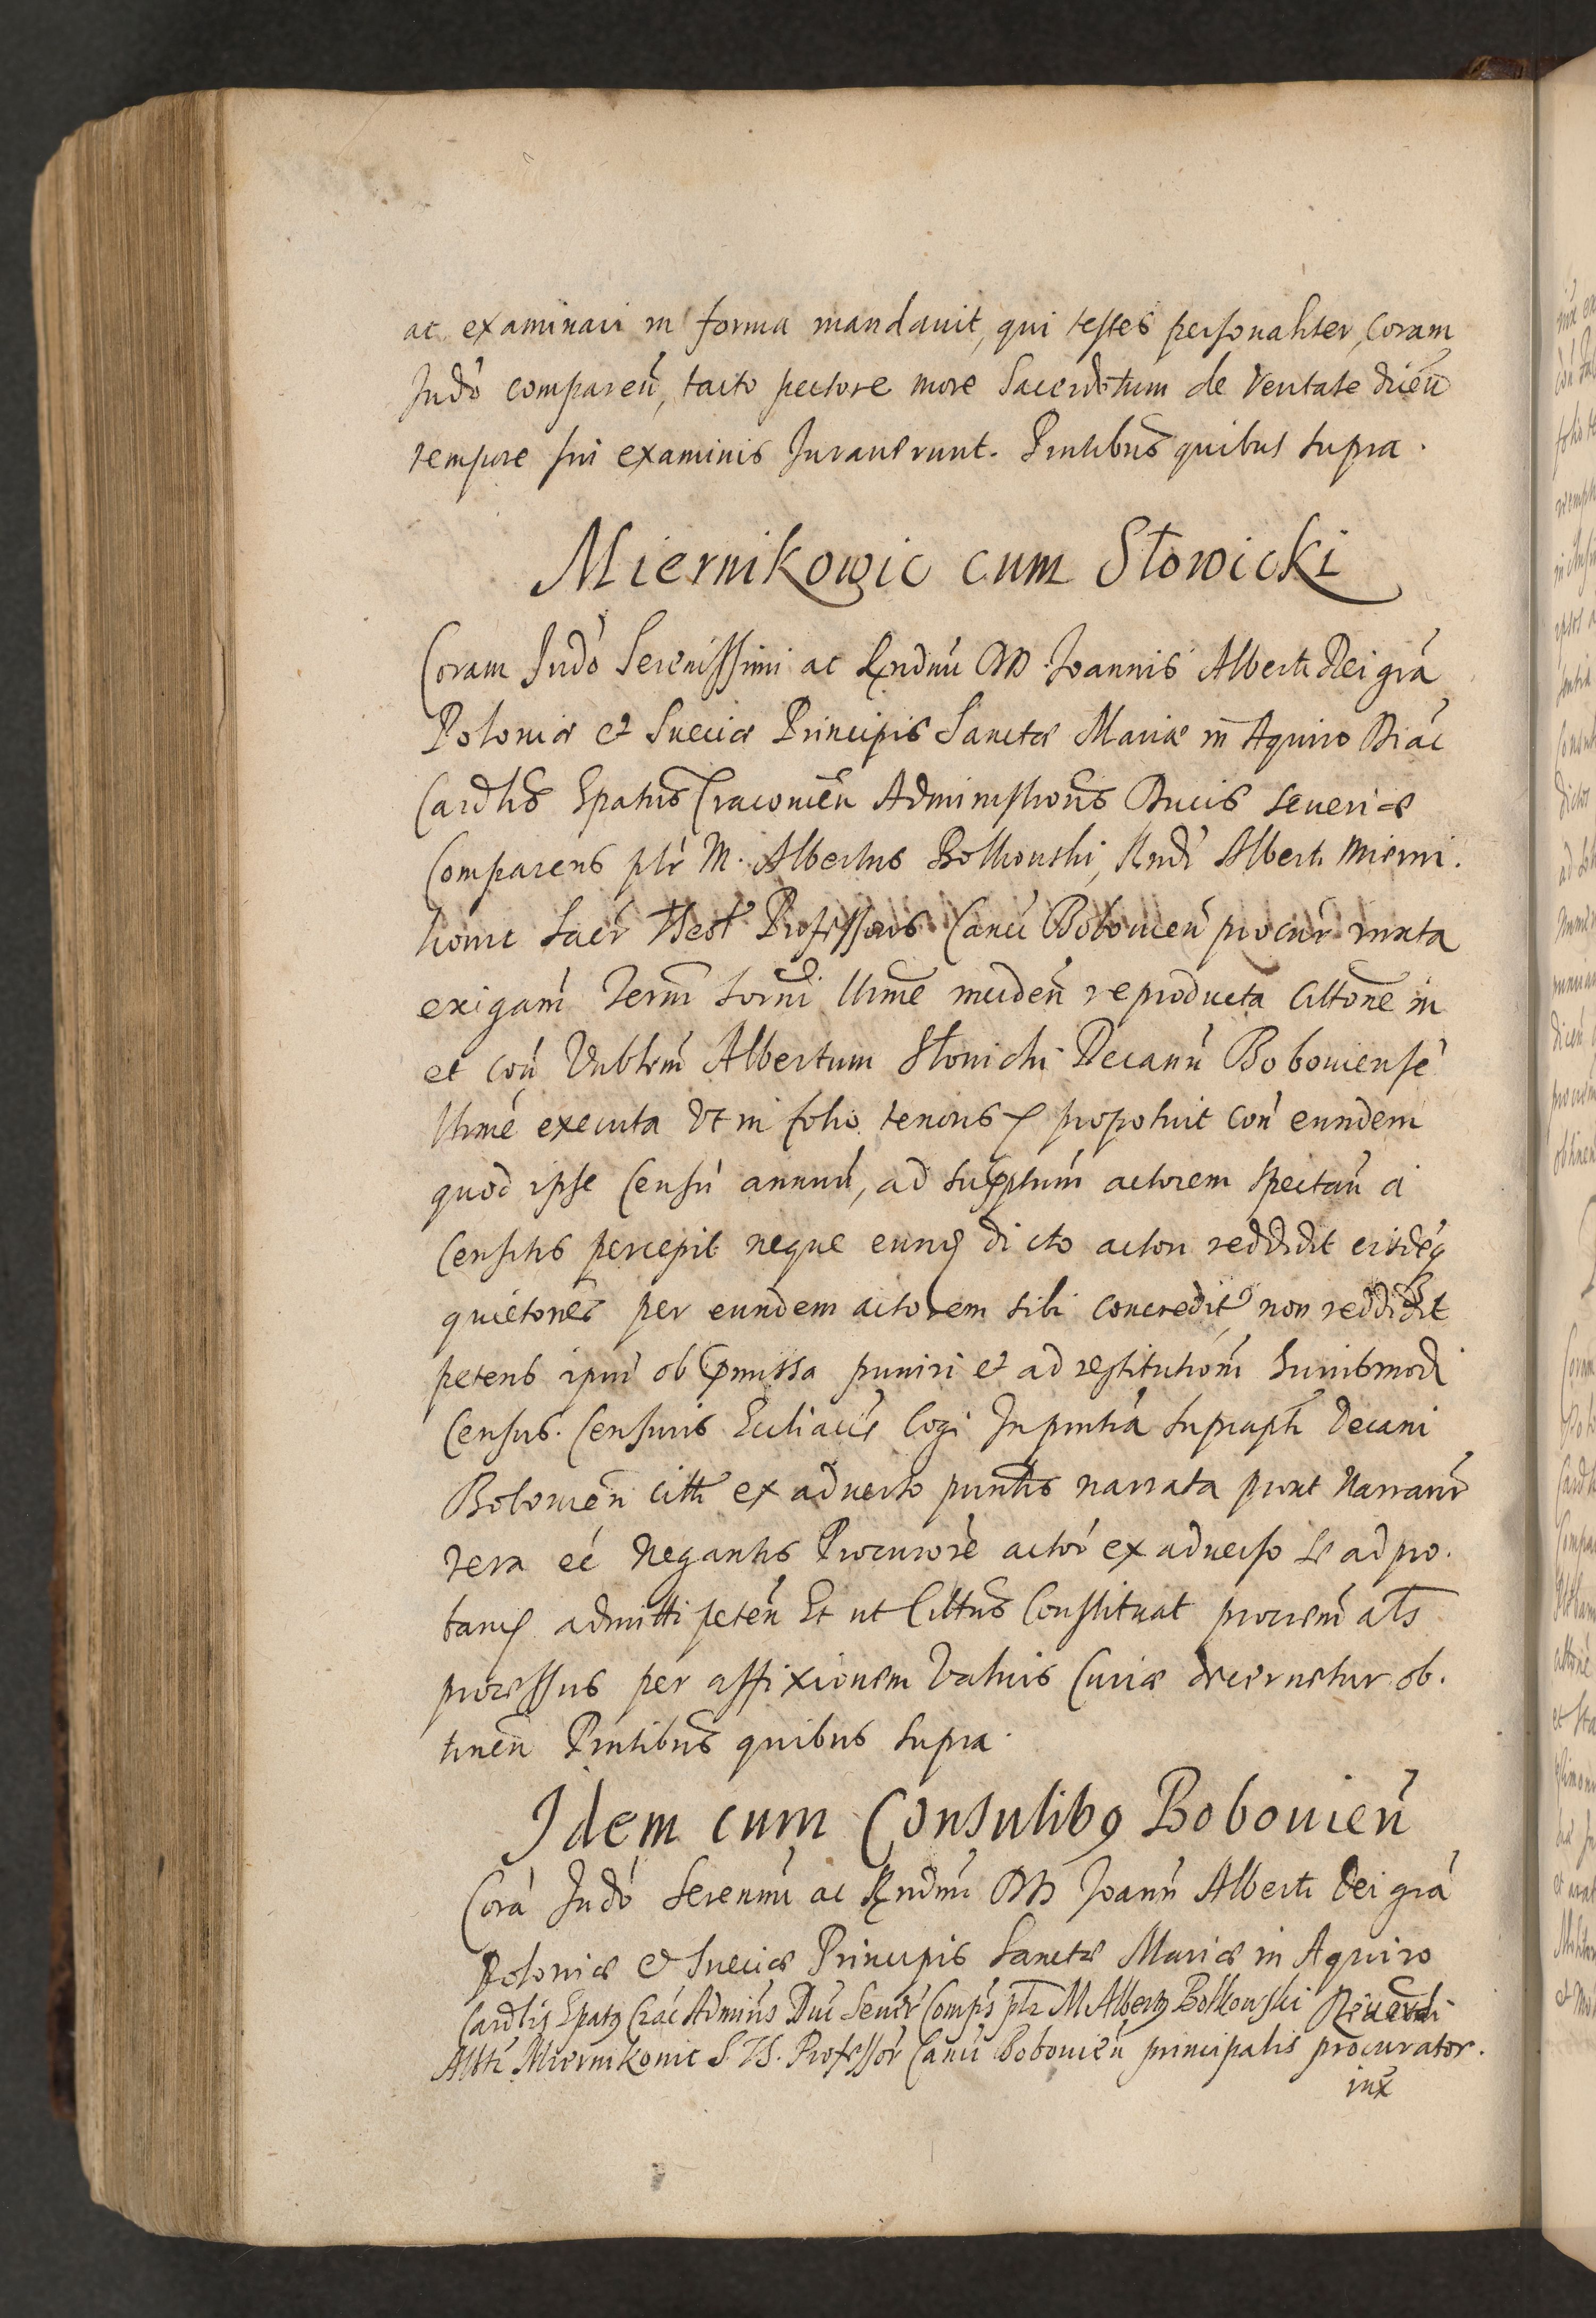 ac examinari in forma mandauit, qui testes personaliter, coram
Judõ compareñ, tacto pectore more Sacerdotum de Veritate diceñ
tempore sui examinis Jurauerunt. Pñtibus quibus supra.
Miernikowic cum Słowicki
Coram Judõ Serenissimi ac Rndmi DD. Joannis Alberti Dei grã
Poloniæ et Sueciæ Principis Sanctæ Mariæ in Aquiro Diac
Cardlis Epatus Cracouieñ Administroris Ducis Seueriæ
Comparens pltr M. Albertus Bolkowski, Rndi Alberti Mierni.
kowic Sacr Theol Professoris Canci Bobouieñ procur iuxta
exigam Termi horni lltime incideñ reproducta Citlone in
et coñ Vnblem Albertum Słowicki Decanũ Bobouiensẽ
lltime executa vt in folio tenoris propotuit coñ eundem
quod ipse Censũ annuũ, ad supptum actorem spectañ a
Censitis percepit neque eum dicto actori reddidit eisdẽq
quietones per eundem actorem sibi concredit non reddidit
petens ipm ob pmissa puniri et ad restitutionem huiusmodi
Census. Censuris Eccliacis Cogi In pñtia suprapti Decani
Bobouieñ citti ex aduerso pñtis narrata prout Narrantr
vera eẽ Negantis Procurore actor ex aduerso se ad pro.
band admitti peteñ Et ut Cittus Constituat procrem als
processus per affixionem Valuis Curiæ decernetur ob.
tineñ Pñtibus quibus supra.
Idem cum Consulibq Bobouieñ
Corã Judõ Serenmi ac Rndmi DD Joanñ Alberti Dei grã
Poloniæ et Sueciæ Principis Sanctæ Mariæ in Aquiro
Cardlis Epatq Crac Adminis Duc Seuer Compñs pltr M Albertq Bolkowski Reuerdi
Albti Miernikowic S. Th. Professor Canci Bobouieñ principalis procurator.
iux